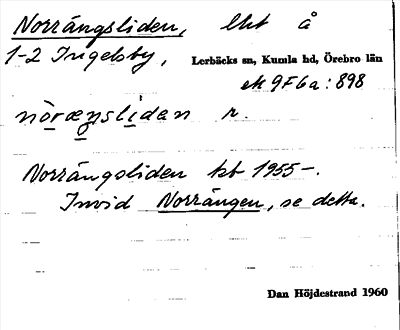 Norrängsliden, lht å
1-2 Ingelsby, Lerbäcks sn, Kumla hd, Örebro län
ek 9F6a:898
nòræŋslìdan r.
Norrängsliden kb 1955-.
Invid Norrängen, se detta.
Dan Höjdestrand 1960